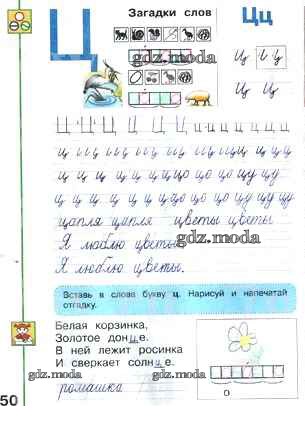 Загадки слов
Ц
Цц
gdz.moda
ц ц ц
gdz.moda
ц ц
Ц Ц Ц Ц Ц Ц Ц Ц Ц
gdz.moda
цапля цапля цветы цветы
Я люблю цветы
gdz.moda
Я люблю цветы.
Вставь в слова букву ц. Нарисуй и напечатай
отгадку.
Белая корзинка,
Золотое донце.
В ней лежит росинка
И сверкает солнце.
gdz.moda
gdz.moda
ромашка
о
50